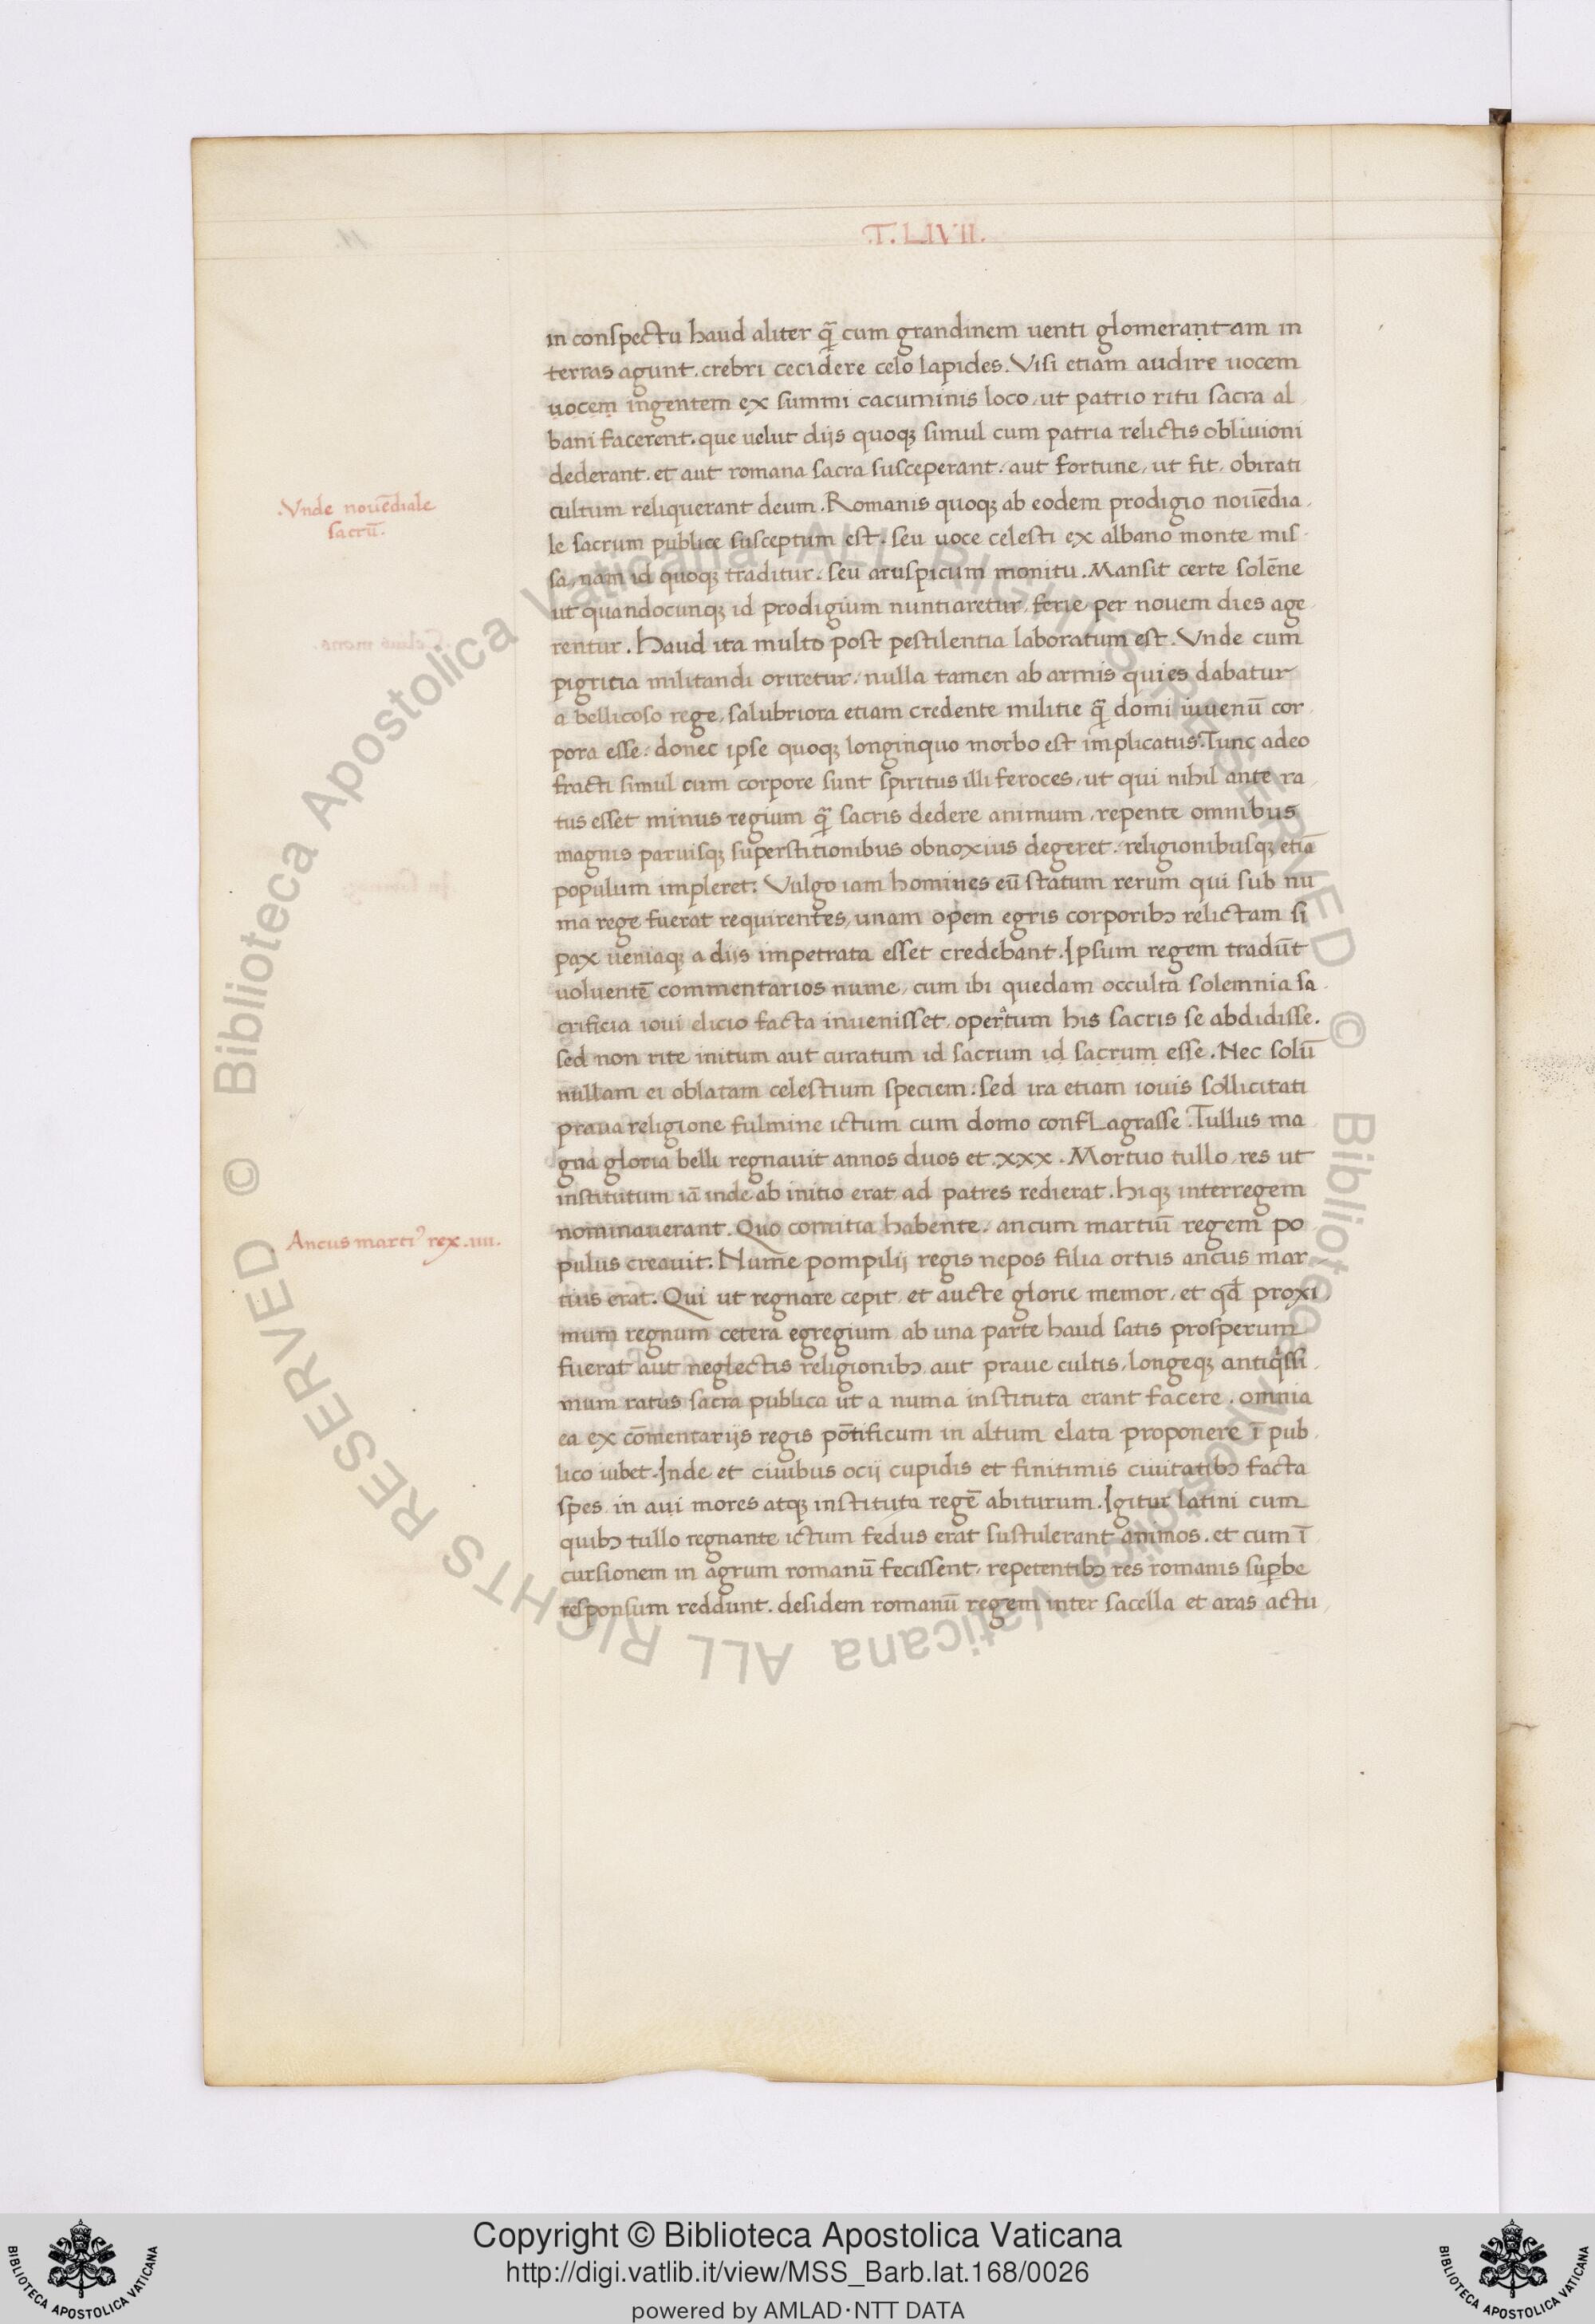 T. LIVII.
in conspectu haud aliter q̃ cum grandinem uenti glomerant am in
terras agunt. crebri cecidere celo lapides. Visi etiam audire uocem
uocem ingentem ex summi cacuminis loco, ut patrio ritu sacra al
bani facerent. que uelut dijs quoq; simul cum patria relictis obliuioni
dederant. et aut romana sacra susceperant. aut fortune, ut fit, obirati
.Vnde nouēdiale
sacrū.
cultum reliquerant deum. Romanis quoq; ab eodem prodigio nouēdia
le sacrum publice susceptum est. seu uoce celesti ex albano monte mis
sa, nam id quoq; traditur. seu aruspicum monitu. Mansit certe solēne
ut quandocunq; id prodigium nuntiaretur, ferie per nouem dies age
rentur. Haud ita multo post pestilentia laboratum est. Vnde cum
pigritia militandi oriretur, nulla tamen ab armis quies dabatur
a bellicoso rege, salubriora etiam credente militie q̃ domi iuuenū cor
pora esse: donec ipse quoq; longinquo morbo est implicatus. Tunc adeo
fracti simul cum corpore sunt spiritus illi feroces, ut qui nihil ante ra
tus esset minus regium q̃ sacris dedere animum, repente omnibus
magnis paruisq; superstitionibus obnoxius degeret. religionibusq; etiā
populum impleret. Vulgo iam homines eū statum rerum qui sub nu
ma rege fuerat requirentes, unam opem egris corporibɔ relictam si
pax ueniaq; a dijs impetrata esset credebant. Ipsum regem tradūt
uoluentē commentarios nume, cum ibi quedam occulta solemnia sa
crificia ioui elicio facta inuenisset, opertum his sacris se abdidisse.
sed non rite initum aut curatum id sacrum id sacrum esse. Nec solū
nullam ei oblatam celestium speciem: sed ira etiam iouis sollicitati
praua religione fulmine ictum cum domo conflagrasse. Tullus ma
gna gloria belli regnauit annos duos et .xxx. Mortuo tullo, res ut
institutum iā inde ab initio erat ad patres redierat. hi q; interregem
Ancus martiꝰ rex .iiii.
nominauerant. Quo comitia habente, ancum martiū regem po
pulus creauit. Nume pompilij regis nepos filia ortus ancus mar
tius erat. Qui ut regnare cepit, et aucte glorie memor, et qđ proxi
mum regnum cetera egregium ab una parte haud satis prosperum
fuerat aut neglectis religionibɔ aut praue cultis, longeq; antiqissi
mum ratus sacra publica ut a numa instituta erant facere. omnia
ea ex cōmentarijs regis pōtificum in altum elata proponere ī pub
lico iubet. Inde et ciuibus ocij cupidis et finitimis ciuitatibɔ facta
spes. in aui mores atq; instituta regē abiturum. Igitur latini cum
quibɔ tullo regnante ictum fedus erat sustulerant animos. et cum ī
cursionem in agrum romanū fecissent, repetentibɔ res romanis supbe
responsum reddunt. desidem romanū regem inter sacella et aras actu
© Biblioteca Apostolica Vaticana ALL RIGHTS RESERVED
© Biblioteca Apostolica Vaticana ALL RIGHTS RESERVED
BIBLIOTECA APOSTOLICA VATICANA
Copyright © Biblioteca Apostolica Vaticana
http://digi.vatlib.it/view/MSS_Barb.lat.168/0026
powered by AMLAD·NTT DATA
BIBLIOTECA APOSTOLICA VATICANA